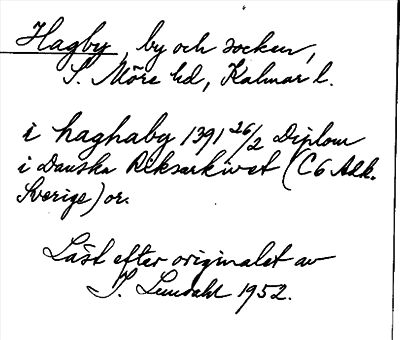 Hagby, by och socken,
S. Möre hd, Kalmar l.
i haghaby 1391 26/2 Diplom
i Danska Riksarkivet (C6 Add.
Sverige) or.
Läst efter originalet av
I. Lundahl 1952.